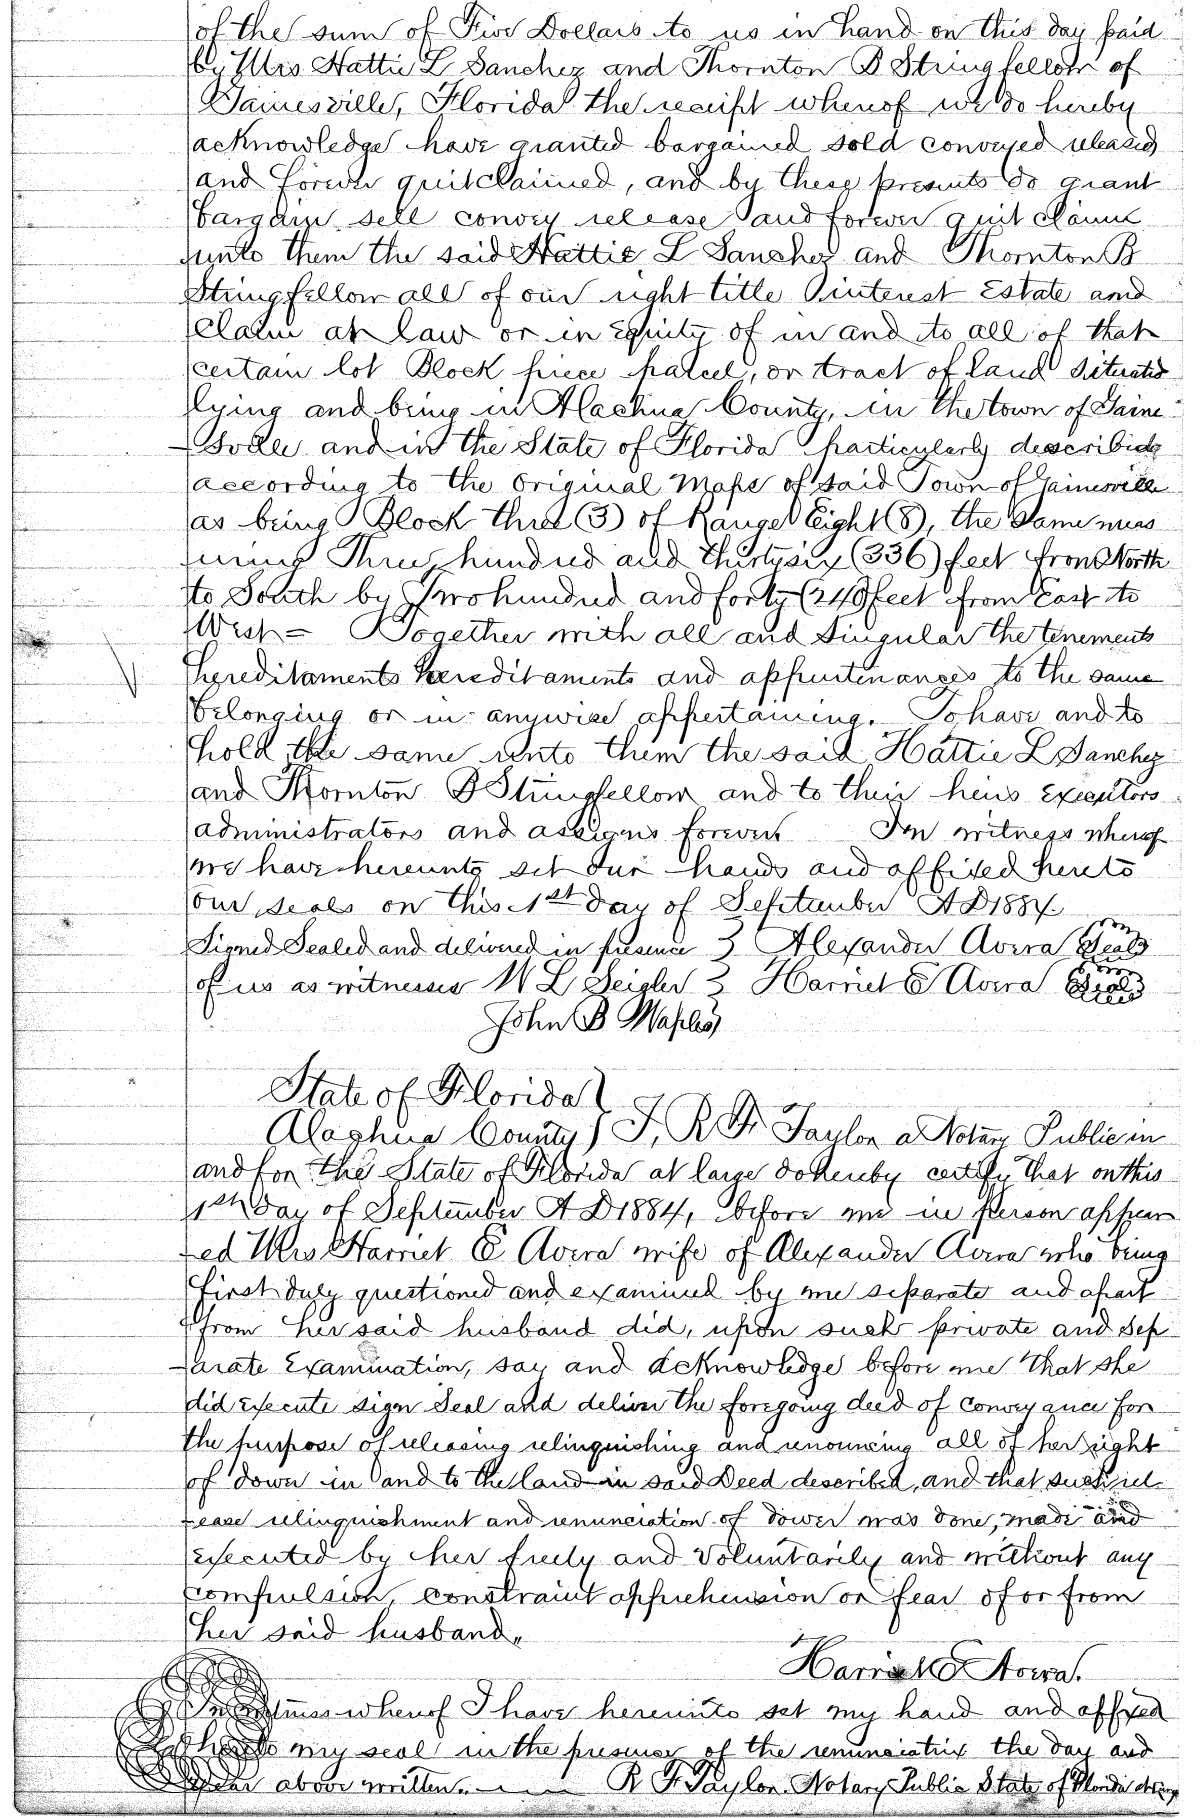 of the sum of Five Dollars to us in hand on this day paid
by Mrs Hattie L Sanchez and Thornton B Stringfellow of
Gainesville, Florida the receipt whereof we do hereby
acknowledge have granted bargained sold conveyed released
and forever quitclaimed, and by these presents do grant
bargain sell convey release and forever quit claim
unto them the said Hattie L Sanchez and Thornton B
Stringfellow all of our right title interest Estate and
Claim at law or in Equity of in and to all of that
certain lot Block piece parcel, or tract of land situated
lying and being in Alachua County, in the town of Gaine
-sville and in the State of Florida particularly described
according to the Original Maps of said Town of Gainesville
as being Block three (3) of Range Eight (8), the same meas
uring Three hundred and thirtysix (336) feet from North
to South by Two hundred and forty (240) feet from East to
West = Together with all and singular the tenements
hereditaments hereditaments and appurtenances to the same
belonging or in anywise appertaining. To have and to
hold the same unto them the said Hattie L Sanchez
and Thornton B Stringfellow and to their heirs Executors
administrators and assigns forever In witness whereof
we have hereunto set our hands and affixed hereto
our seals on this 1st day of September A D 1884
Signed Sealed and delivered in presence } Alexander Avera Seal
of us as witnesses W L Seigler } Harriet E Avera Seal
John B Maples
State of Florida }
Alachua County } I, R F Taylor a Notary Public in
and for the State of Florida at large do hereby certify that on this
1st day of September A D 1884, before me in person appear
-ed Mrs Harriet E Avera wife of Alexander Avera who being
first duly questioned and examined by me separate and apart
from her said husband did, upon such private and sep
-arate Examination, say and acknowledge before me that she
did execute sign seal and deliver the foregoing deed of conveyance for
the purpose of releasing relinquishing and renouncing all of her right
of dower in and to the land in said Deed described, and that such rel-
-ease relinquishment and renunciation of dower was done, made and
executed by her freely and voluntarily and without any
compulsion, constraint apprehension or fear of or from
her said husband,,
Harriet E Avera.
In witness whereof I have hereunto set my hand and affixed
hereto my seal in the presence of the renunciatrix the day and
year above written. R F Taylor Notary Public State of Florida